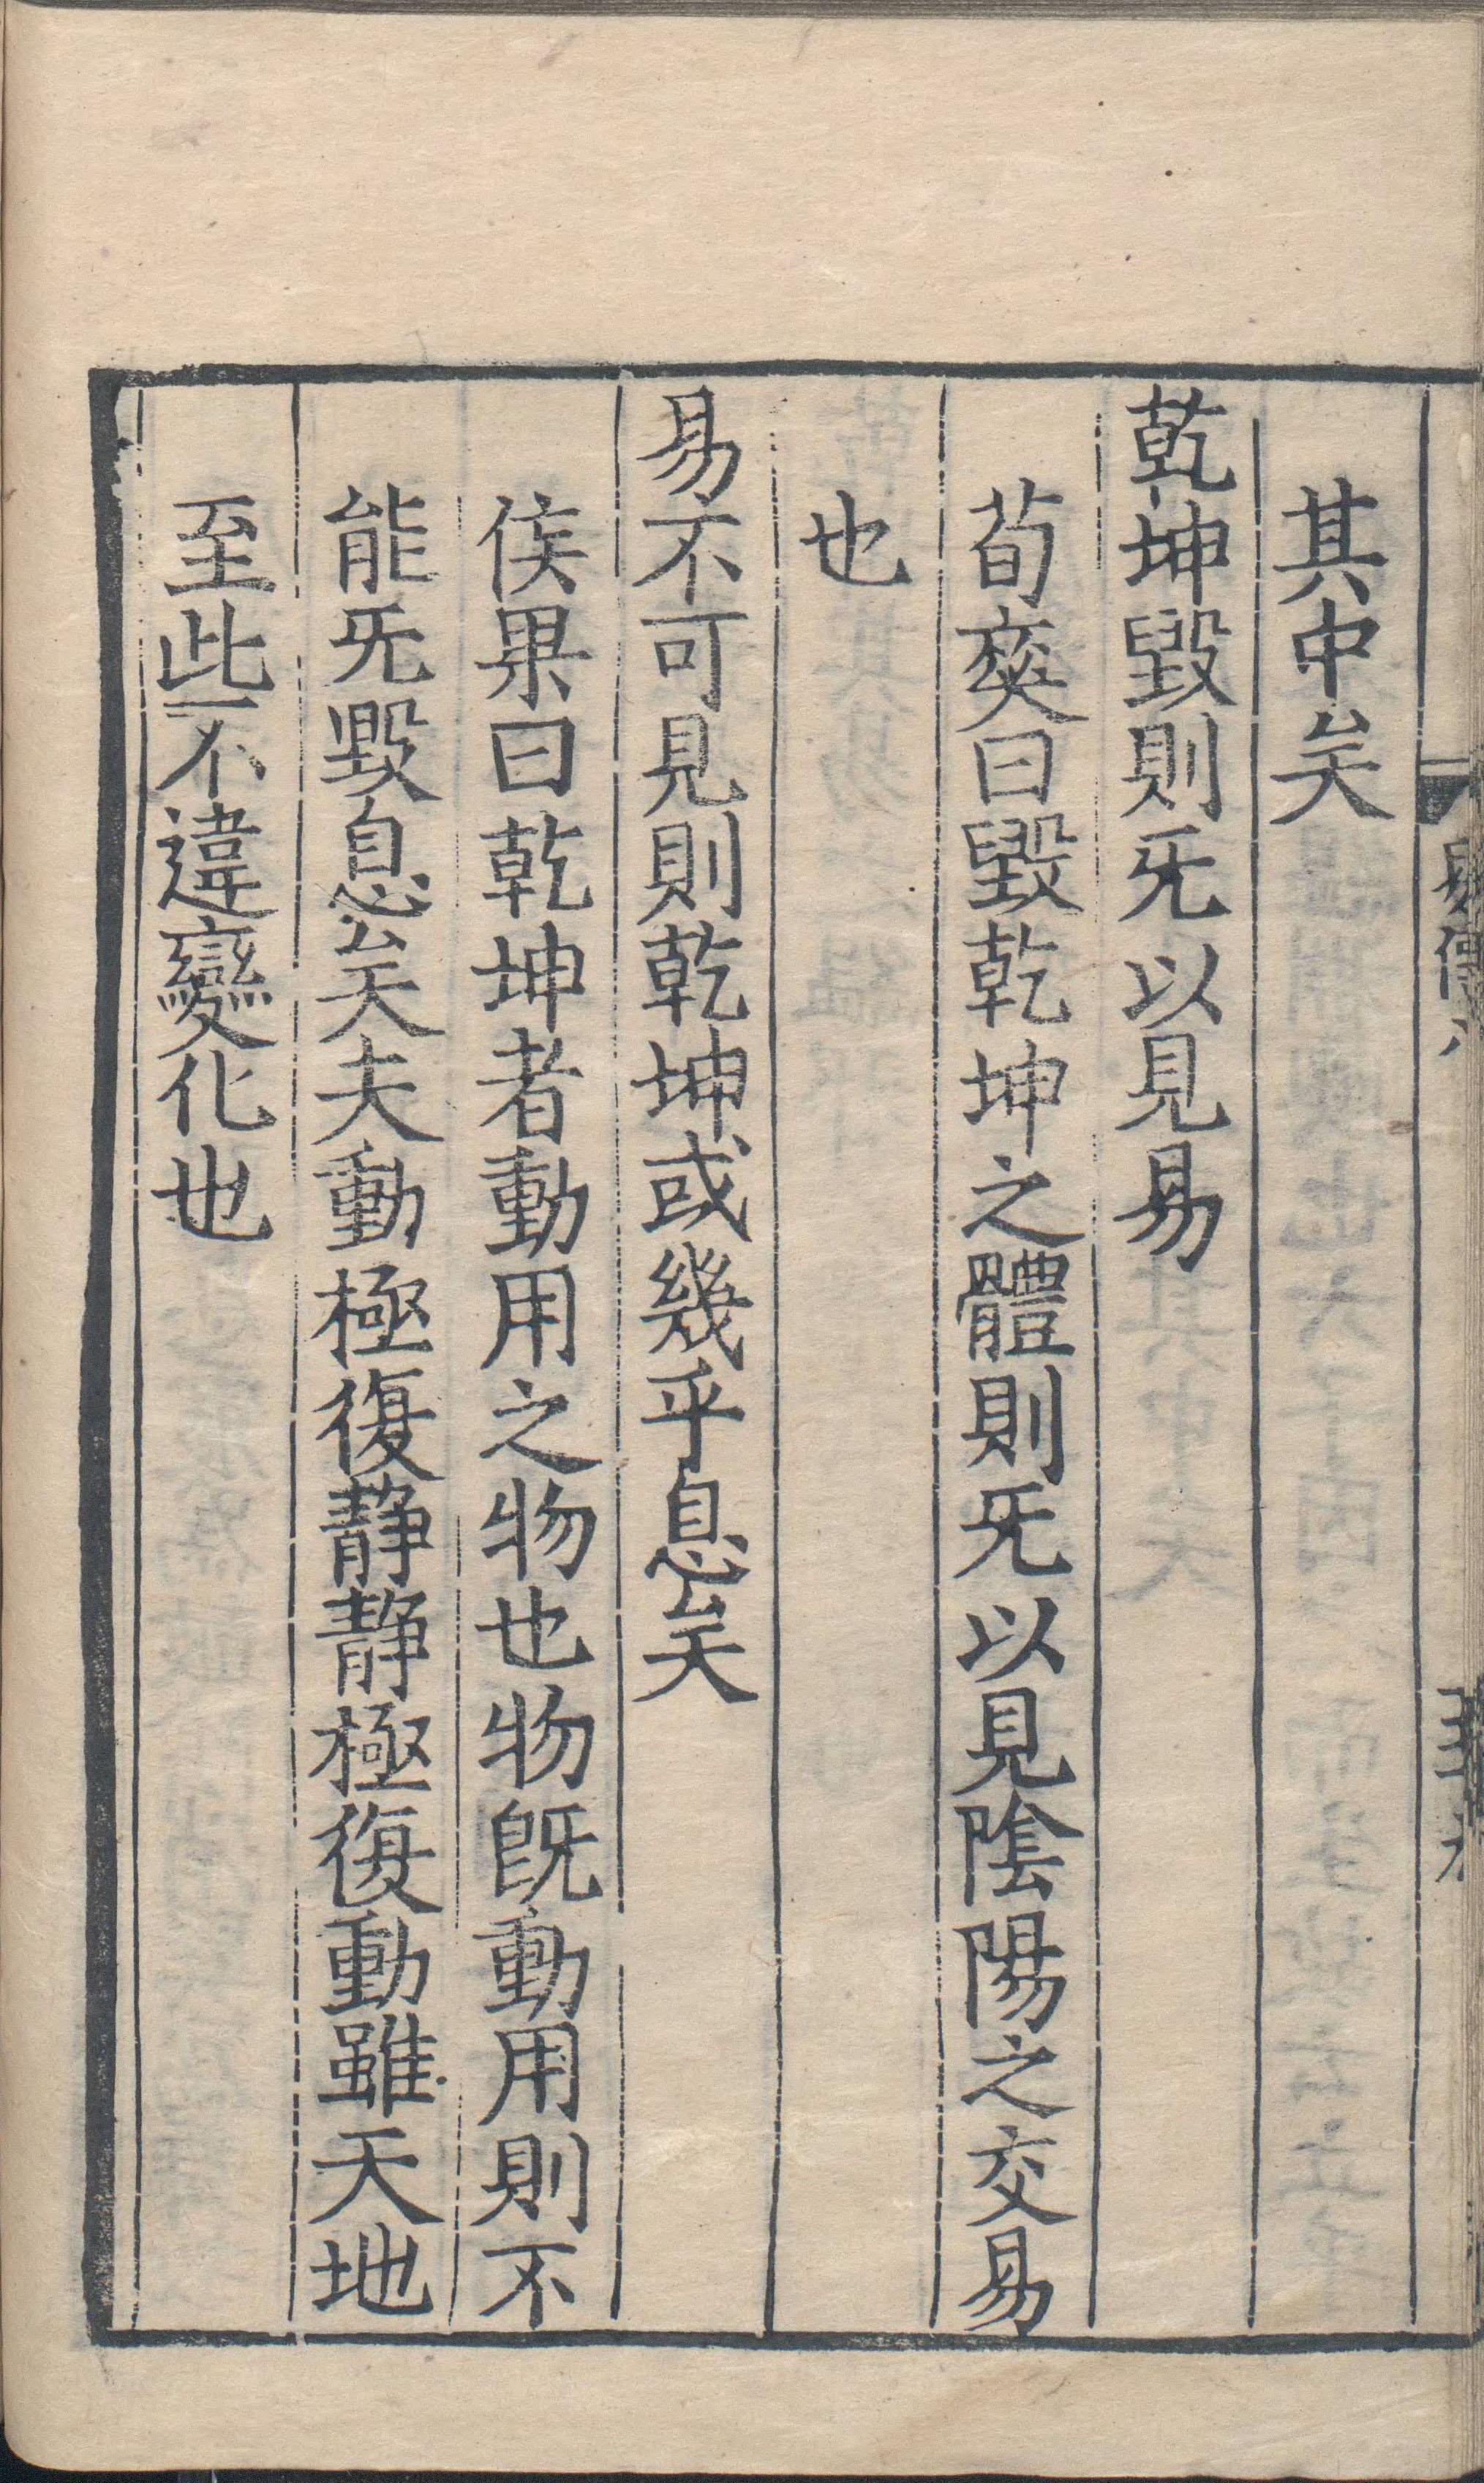 其中矣
乾坤毀則旡以見易
荀爽曰毀乾坤之體則旡以見陰陽之交易
也
易不可見則乾坤或幾乎息矣
侯果曰乾坤者動用之物也物旣動用則不
能旡毀息矣夫動極復静静極復動雖天地
至此不違變化也